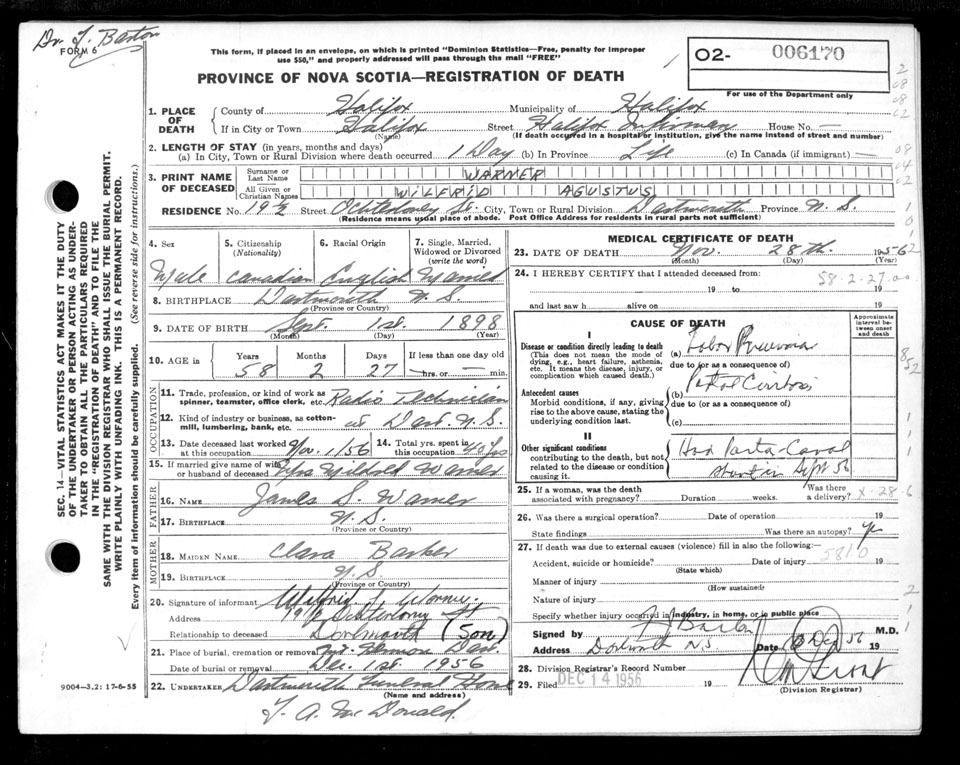 Dr. T. Barton
FORM 6
This form, if placed in an envelope, on which is printed "Dominion Statistics—Free, penalty for improper
use $50," and properly addressed will pass through the mail "FREE"
PROVINCE OF NOVA SCOTIA—REGISTRATION OF DEATH
02- 006170
For use of the Department only
1. PLACE OF DEATH County of Halifax Municipality of Halifax
If in City or Town Halifax (Name) Street Halifax Infirmary House No. —
(If death occurred in a hospital or institution, give the name instead of street and number)
2. LENGTH OF STAY (in years, months and days)
(a) In City, Town or Rural Division where death occurred 1 Day (b) In Province Life (c) In Canada (if immigrant) —
3. PRINT NAME OF DECEASED Surname or Last Name WARNER
All Given or Christian Names WILFRID AGUSTUS
RESIDENCE No. 19½ Street Ochterloney St. City, Town or Rural Division Dartmouth Province N. S.
(Residents means usual place of abode. Post Office Address for residents in rural parts not sufficient)
4. Sex 5. Citizenship (Nationality) 6. Racial Origin 7. Single, Married, Widowed or Divorced (write the word)
Male Canadian English Married
8. BIRTHPLACE Dartmouth N. S.
(Province or Country)
9. DATE OF BIRTH Sept. 1st. 1898
(Month) (Day) (Year)
10. AGE in Years Months Days If less than one day old
58 2 27 —hrs. or — min.
OCCUPATION
11. Trade, profession, or kind of work as spinner, teamster, office clerk, etc. Radio Technician
12. Kind of industry or business, as cotton-mill, lumbering, bank, etc. at Dart. N.S.
13. Date deceased last worked at this occupation Nov. 1/56 14. Total yrs. spent in this occupation 40 yrs
15. If married give name of wife or husband of deceased Mildred Warner
FATHER
16. NAME James S. Warner
17. BIRTHPLACE N. S.
(Province or Country)
MOTHER
18. MAIDEN NAME Clara Barker
19. BIRTHPLACE N. S.
(Province or Country)
20. Signature of informant Wilfrid J. Warner
Address 19½ Ochterloney St.
Dartmouth
Relationship to deceased (Son)
21. Place of burial, cremation or removal Mt. Hermon Dart.
Date of burial or removal Dec. 1st. 1956
22. UNDERTAKER Dartmouth Funeral Home
(Name and address)
T. A. McDonald.
9004—3.2: 17-6-55
SEC. 14—VITAL STATISTICS ACT MAKES IT THE DUTY
OF THE UNDERTAKER OR PERSON ACTING AS UNDER-
TAKER TO OBTAIN ALL THE PARTICULARS REQUIRED
IN THE "REGISTRATION OF DEATH" AND TO FILE THE
SAME WITH THE DIVISION REGISTRAR WHO SHALL ISSUE THE BURIAL PERMIT.
WRITE PLAINLY WITH UNFADING INK. THIS IS A PERMANENT RECORD.
Every item of information should be carefully supplied. (See reverse side for instructions.)
MEDICAL CERTIFICATE OF DEATH
23. DATE OF DEATH Nov. 28th. 1956
(Month) (Day) (Year)
24. I HEREBY CERTIFY that I attended deceased from: 58-2-27
19 to 19
and last saw h alive on 19
CAUSE OF DEATH
Approximate interval between onset and death
I
Disease or condition directly leading to death
(This does not mean the mode of dying, e.g., heart failure, asthenia, etc. It means the disease, injury, or complication which caused death.)
(a) Lobar Pneumonia
due to (or as a consequence of)
Antecedent causes
Morbid conditions, if any, giving rise to the above cause, stating the underlying condition last.
(b) Portal Cirrhosis
due to (or as a consequence of)
(c)
II
Other significant conditions contributing to the death, but not related to the disease or condition causing it.
Had Porta-Caval
Shunt in Sept 56
25. If a woman, was the death associated with pregnancy? Duration weeks. Was there a delivery?
26. Was there a surgical operation? Date of operation 19
State findings Was there an autopsy? yes
27. If death was due to external causes (violence) fill in also the following: 5810
Accident, suicide or homicide? Date of injury 19
(State which)
Manner of injury
(How sustained)
Nature of injury
Specify whether injury occurred in industry, in home, or in public place
Signed by T Barton M.D.
Address Dartmouth N.S. Date Dec 56 19
28. Division Registrar's Record Number
29. Filed DEC 14 1956 19
(Division Registrar)